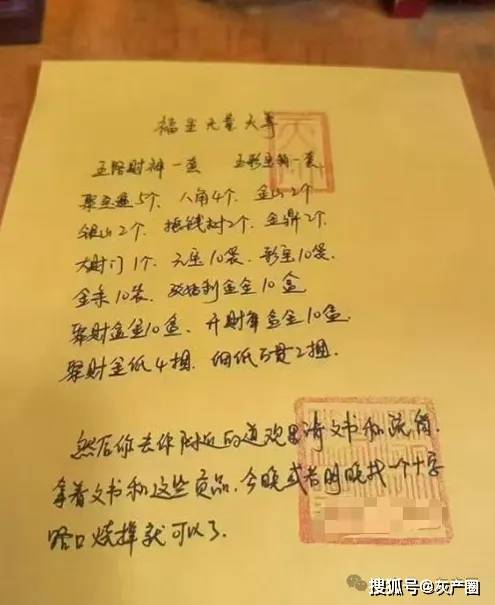 福生无量天尊
五路财神一套 五彩宝
聚宝盆5个、八角4个、金山2个
银山2个、摇钱树2个、金鼎2个、
大财门1个、元宝10袋、彩宝10袋、
金条10袋、金宝10盒
聚财盒金10盒、开财库盒金10盒、
聚财金纸4捆、2捆、
然后你去你附近的道观里请文书和流商、
拿着文书和这些贡品、今晚或者明晚找一个十字
路口烧掉就可以了、
搜狐号@灰产圈